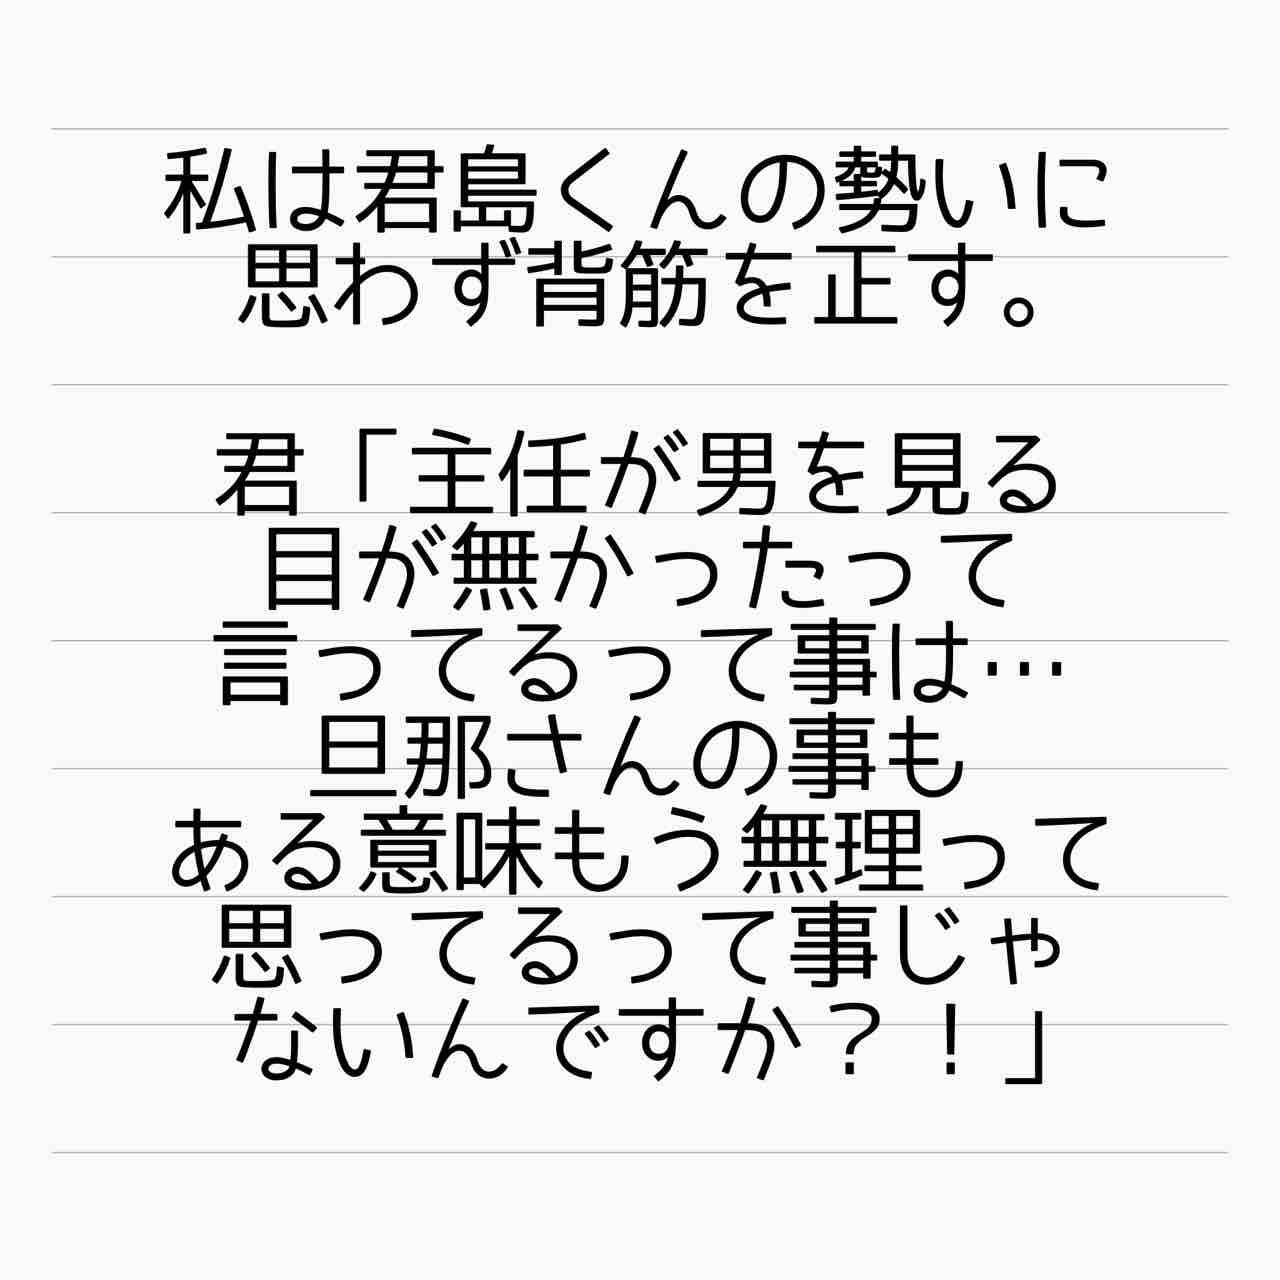 私は君島くんの勢いに
思わず背筋を正す。
君「主任が男を見る
目が無かったって
言ってるって事は…
旦那さんの事も
ある意味もう無理って
思ってるって事じゃ
ないんですか？！」